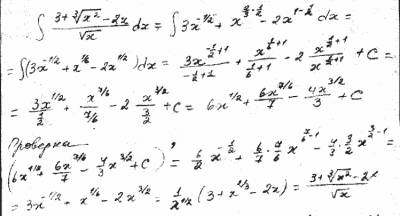 ∫ (3+∛x² − 2x)/√x dx = ∫ 3x^(-1/2) + x^(2/3-1/2) − 2x^(1-1/2) dx =
= ∫(3x^(-1/2) + x^(1/6) − 2x^(1/2))dx = 3x^(-1/2+1)/(-1/2+1) + x^(1/6+1)/(1/6+1) − 2 x^(1/2+1)/x^(1/2+1) + C =
= 3x^(1/2)/(1/2) + x^(7/6)/(7/6) − 2 x^(3/2)/(3/2) + C = 6x^(1/2) + 6x^(7/6)/7 − 4x^(3/2)/3 + C
Проверка
(6x^(1/2) + 6x^(7/6)/7 − 4/3 x^(3/2) + C)' = 6/2 x^(-1/2) + 6/7·7/6 x^(7/6-1) − 4/3·3/2 x^(3/2-1) =
= 3x^(-1/2) + x^(1/6) − 2x^(3/2) = 1/x^(1/2) (3 + x^(2/3) − 2x) = (3+∛x² − 2x)/√x